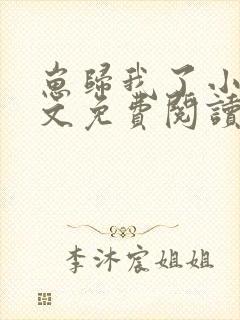 崽歸我了小
文免費閱讀
李沐宸姐姐